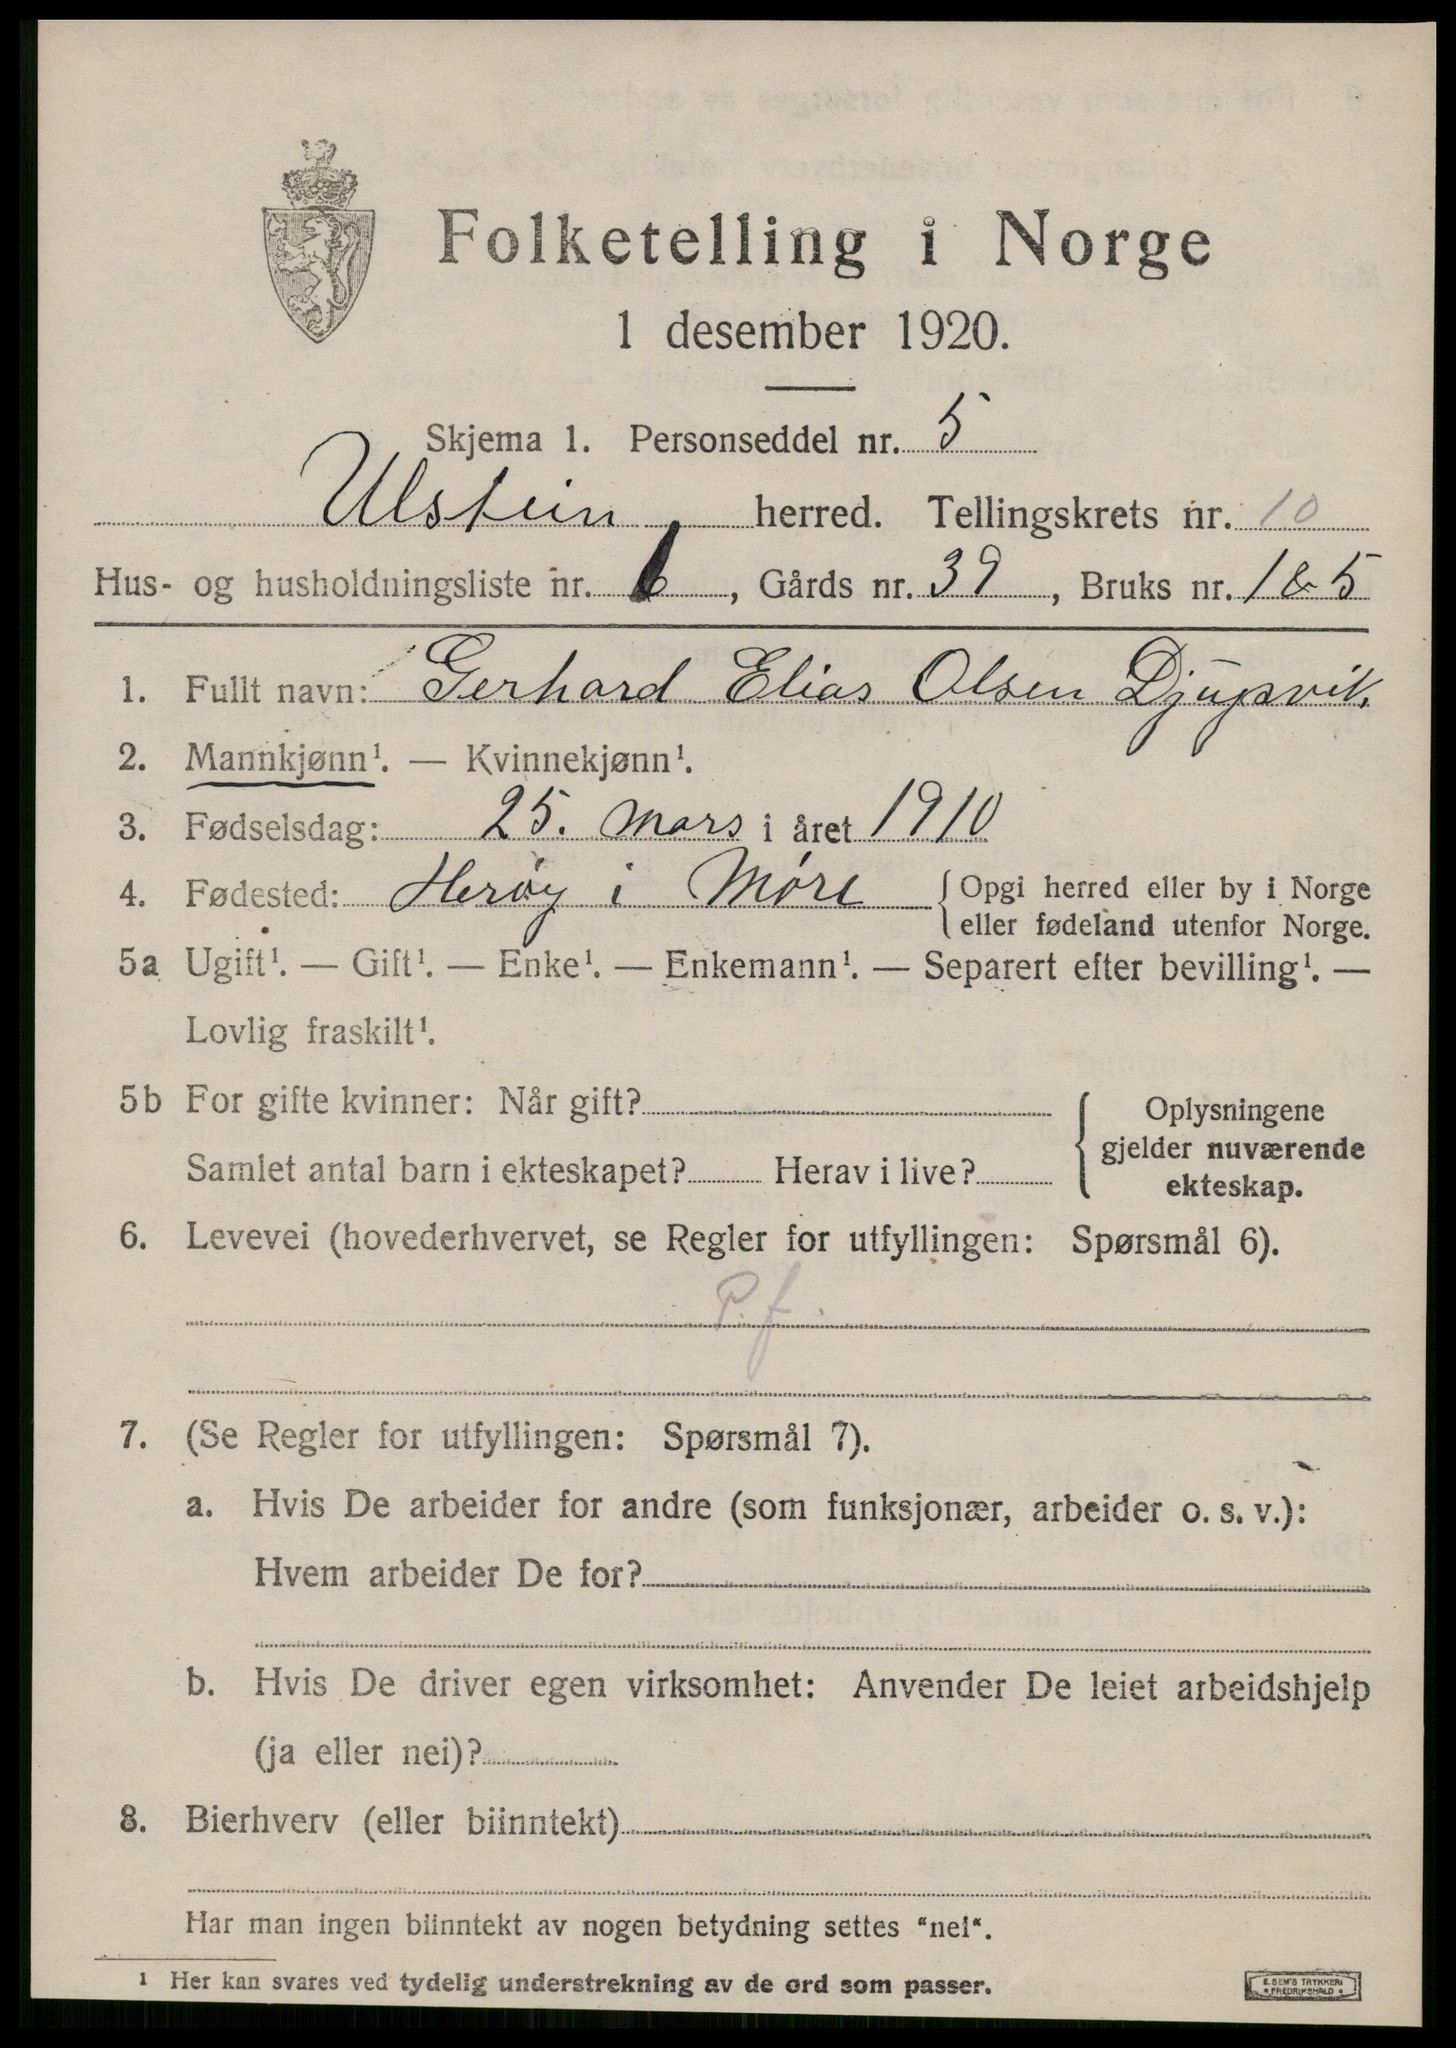 Folketelling i Norge
1 desember 1920.
Skjema 1. Personseddel nr. 5
Ulstein herred. Tellingskrets nr. 10
Hus- og husholdningsliste nr. 6, Gårds nr. 39, Bruks nr. 1&5
1. Fullt navn: Gerhard Elias Olsen Djupvik.
2. Mannkjønn¹. — Kvinnekjønn¹.
3. Fødselsdag: 25. mars i året 1910
4. Fødested: Herøy i Møre { Opgi herred eller by i Norge
eller fødeland utenfor Norge.
5a Ugift¹. — Gift¹. — Enke¹. — Enkemann¹. — Separert efter bevilling¹. —
Lovlig fraskilt¹.
5b For gifte kvinner: Når gift? { Oplysningene
gjelder nuværende
Samlet antal barn i ekteskapet? Herav i live? ekteskap.
6. Levevei (hovederhvervet, se Regler for utfyllingen: Spørsmål 6).
P.f.
7. (Se Regler for utfyllingen: Spørsmål 7).
a. Hvis De arbeider for andre (som funksjonær, arbeider o. s. v.):
Hvem arbeider De for?
b. Hvis De driver egen virksomhet: Anvender De leiet arbeidshjelp
(ja eller nei)?
8. Bierhverv (eller biinntekt)
Har man ingen biinntekt av nogen betydning settes "nei".
¹ Her kan svares ved tydelig understrekning av de ord som passer.
E. SEM'S TRYKKERI
• FREDRIKSHALD •